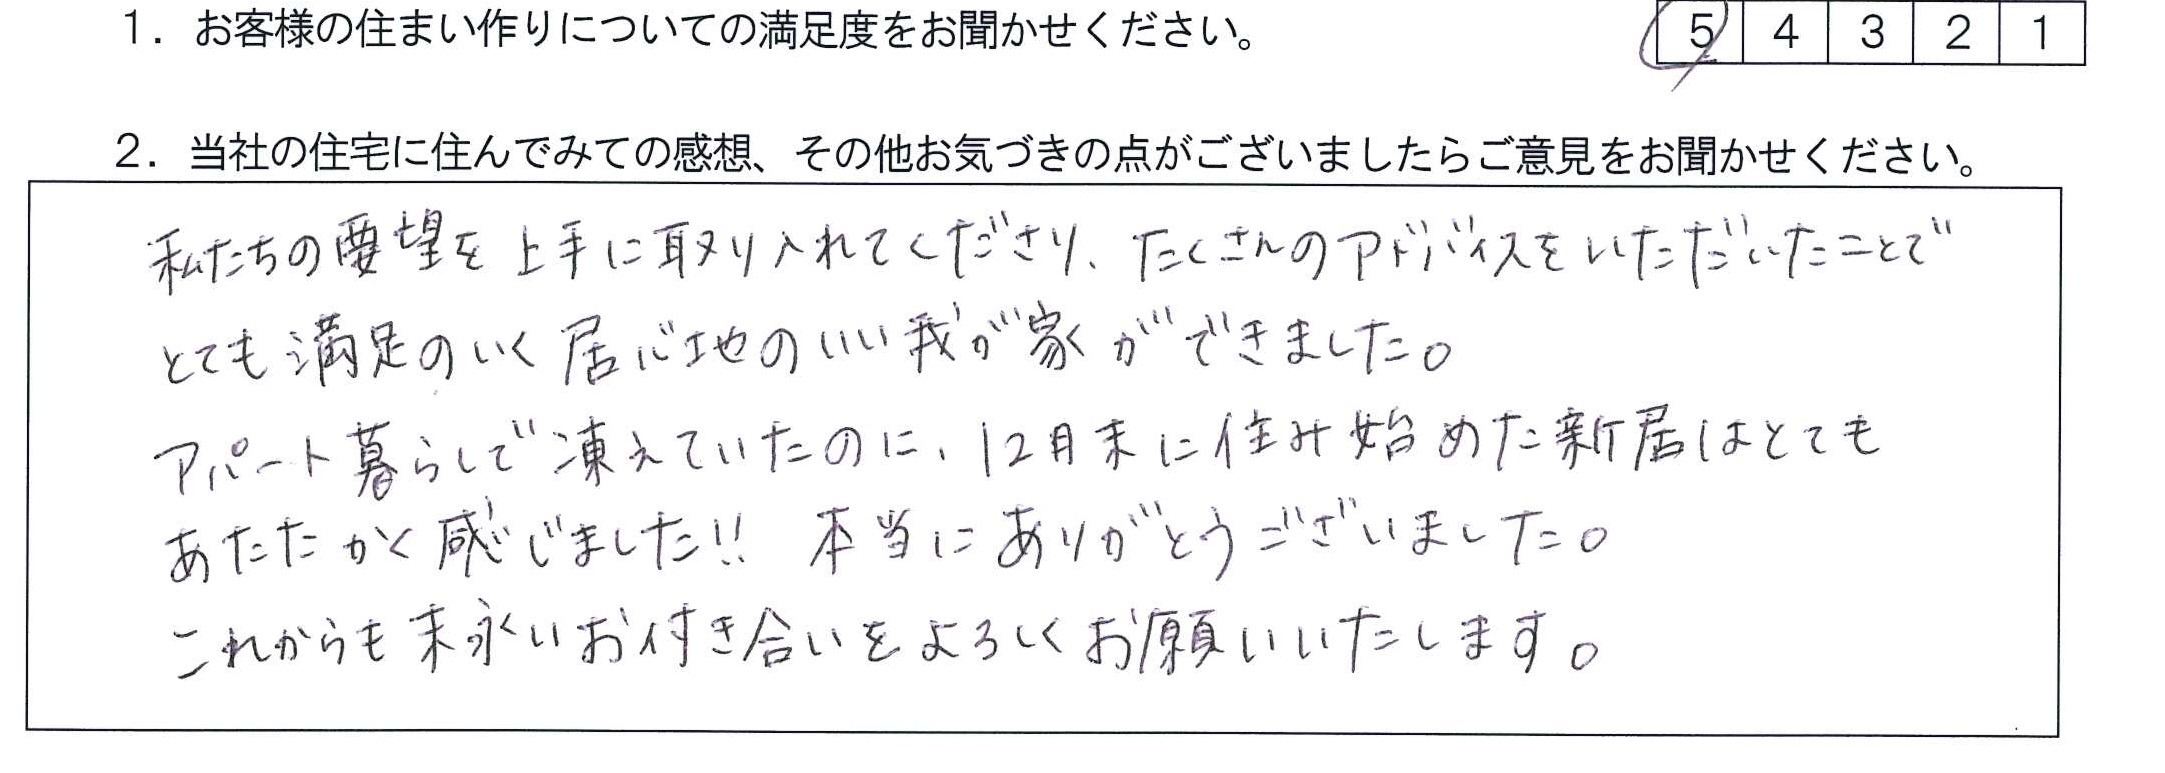 1．お客様の住まい作りについての満足度をお聞かせください。 5 4 3 2 1
2．当社の住宅に住んでみての感想、その他お気づきの点がございましたらご意見をお聞かせください。
私たちの要望を上手に取り入れてくださり、たくさんのアドバイスをいただいたことで
とても満足のいく居心地のいい我が家ができました。
アパート暮らしで凍えていたのに、12月末に住み始めた新居はとても
あたたかく感じました!! 本当にありがとうございました。
これからも末永いお付き合いをよろしくお願いいたします。